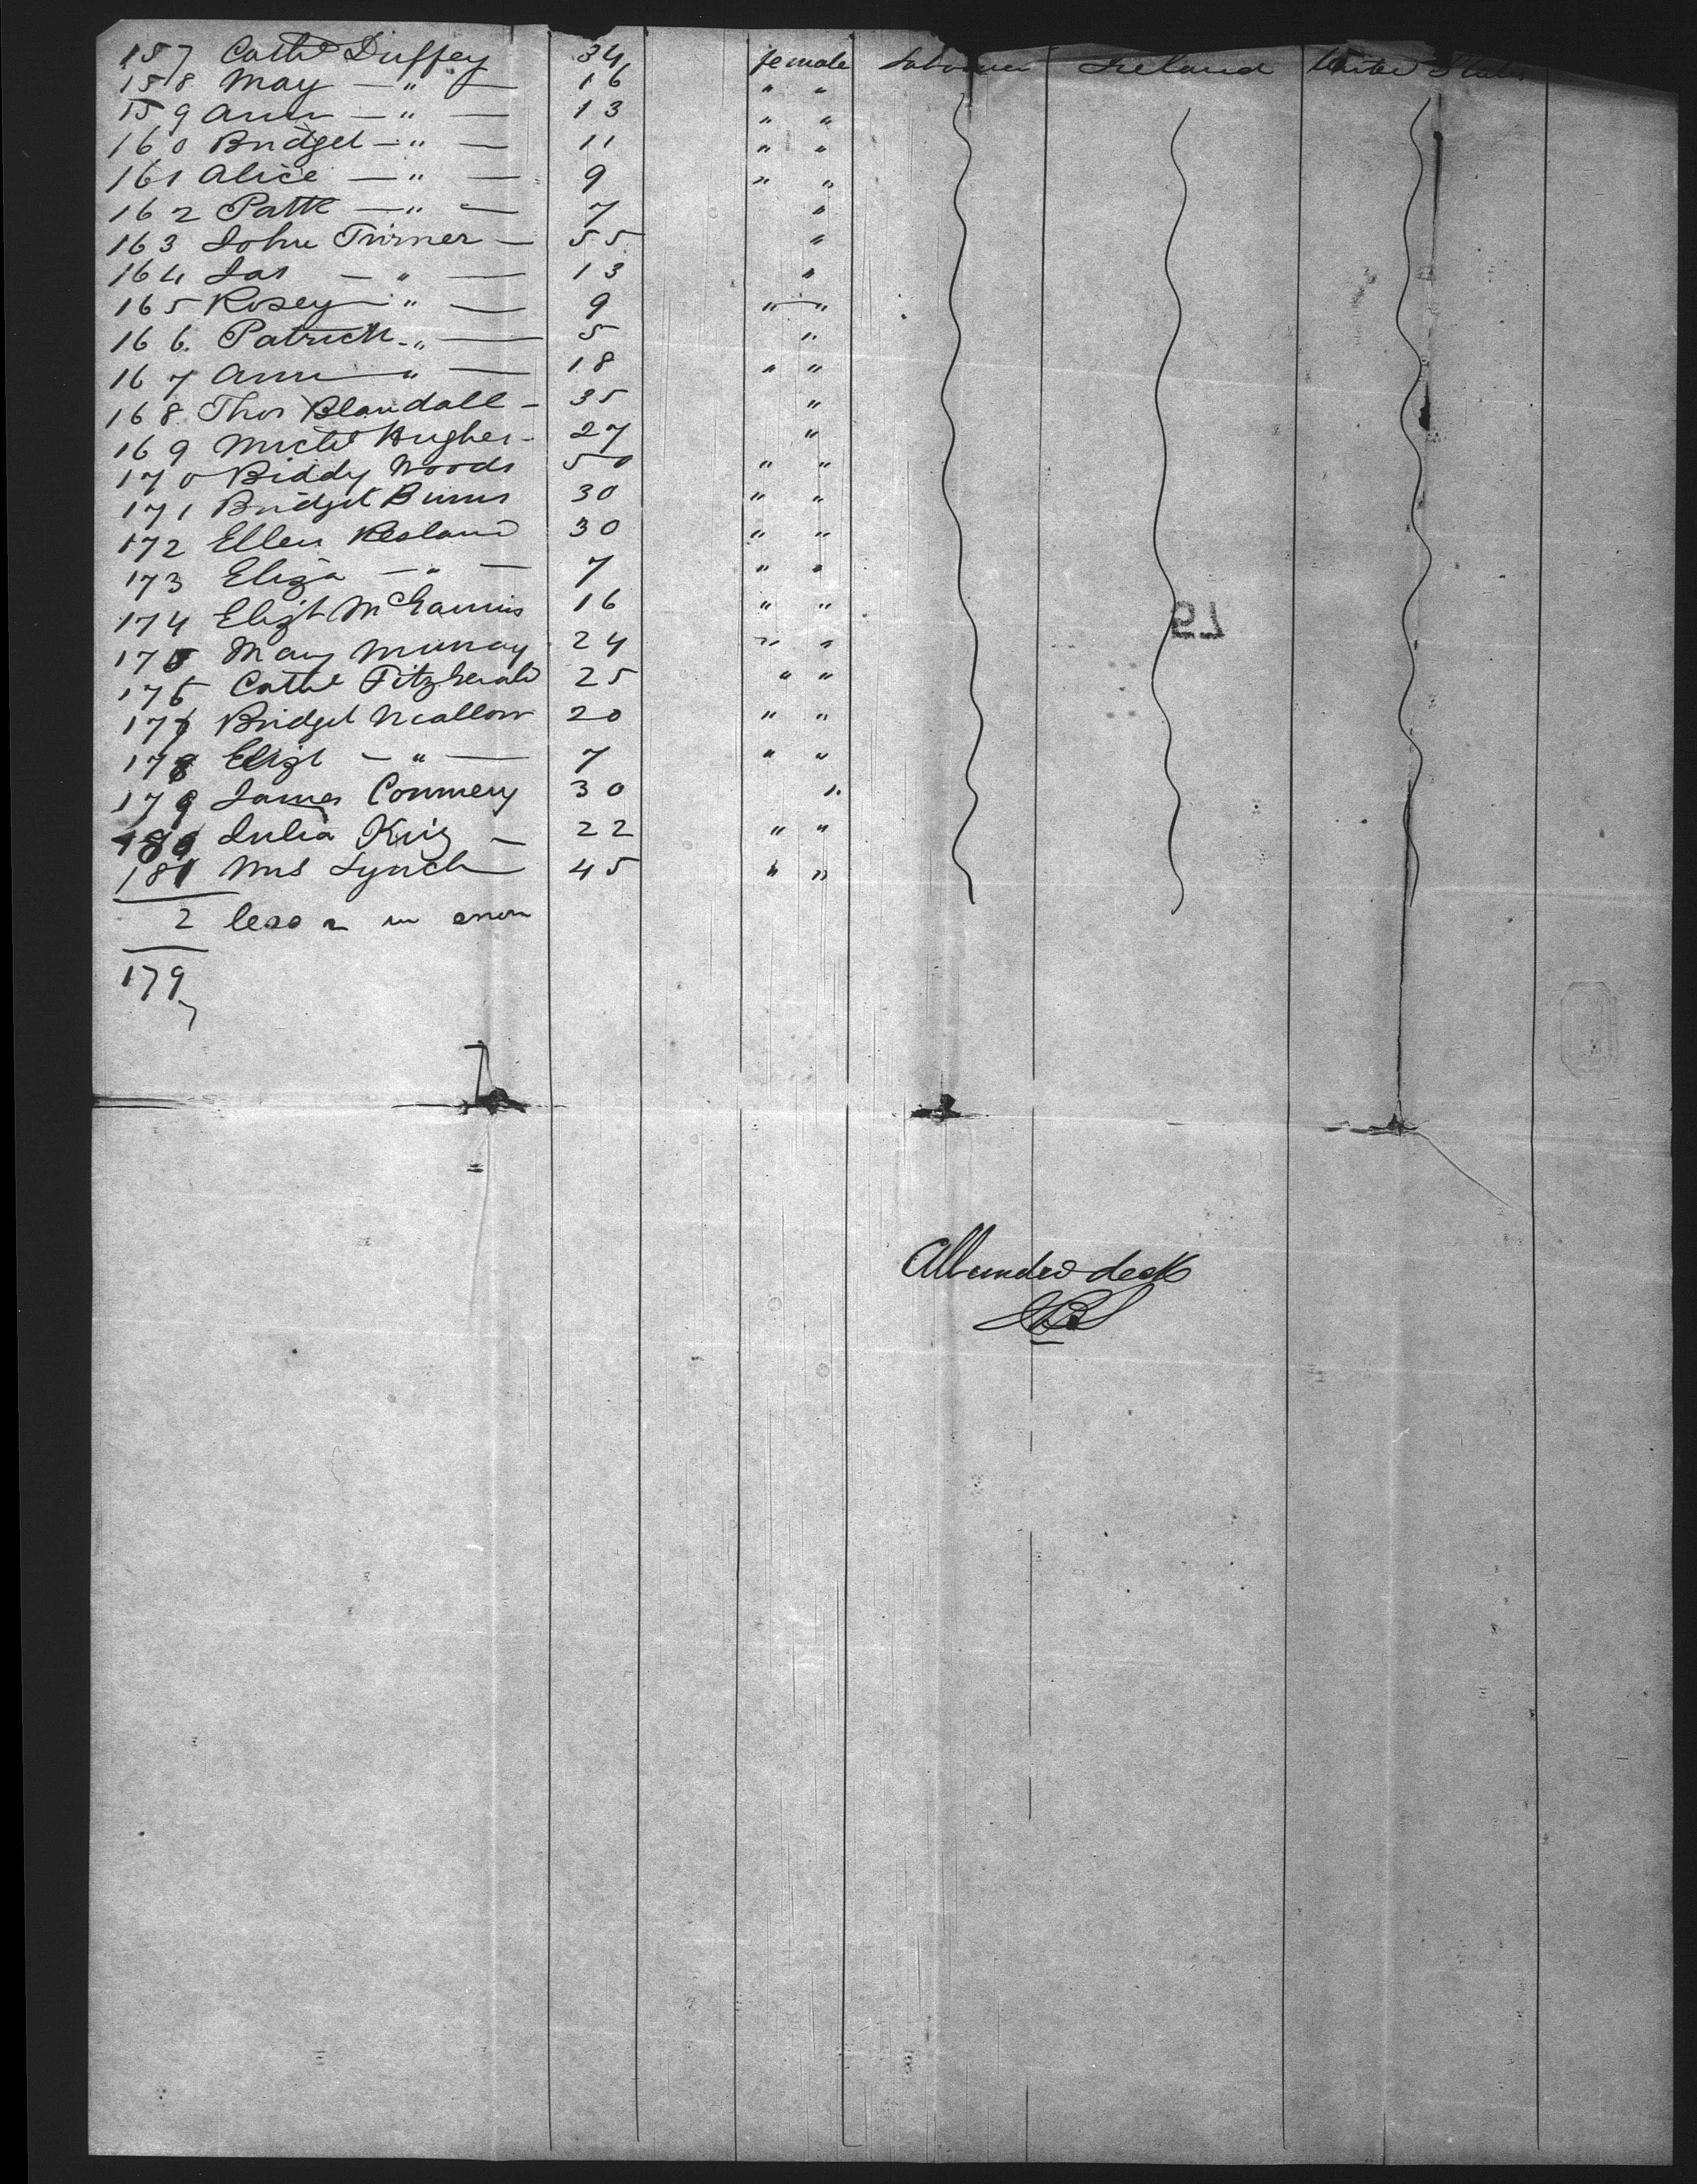 157 Cathe Duffey 34 female Labourer Ireland United States
158 May — " — 16 " "
159 Ann — " — 13 " "
160 Bridget — " — 11 " "
161 Alice — " — 9 " "
162 Patk — " — 7 "
163 John Turner — 55 "
164 Jas — " — 13 "
165 Rosey " — 9 " "
166 Patrick " — 5 "
167 Ann " — 18 " "
168 Thos Blandall — 35 "
169 Michl Hughes — 27 "
170 Biddy Woods 50 " "
171 Bridget Burns 30 " "
172 Ellen 30 " "
173 Eliza — " — 7 " "
174 Elizt 16 " "
175 Mary Murray 24 " "
176 Cathe Fitzherald 25 " "
177 Bridget 20 " "
178 Elizt — " — 7 " "
179 James Conmery 30 "
180 Julia 22 " "
181 Mrs Lynch 45 " "
2 less 2 in error
179
57
All under deck